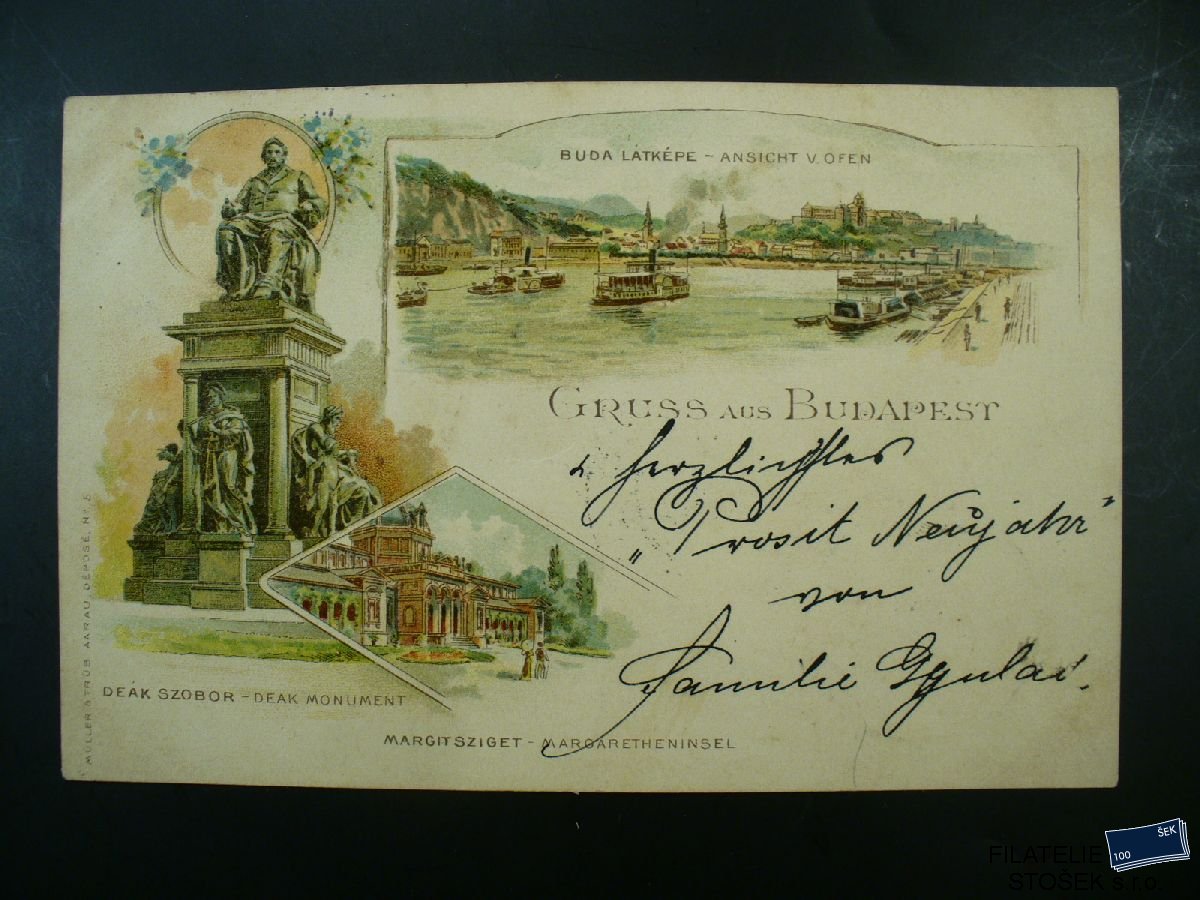 BUDA LÁTKÉPE – ANSICHT V. OFEN
GRUSS AUS BUDAPEST
& herzlichstes
„Prosit Neujahr"
von
Familie Gyulai.
DEÁK SZOBOR – DEAK MONUMENT
MARGITSZIGET – MARGARETHENINSEL
MÜLLER & TRÜB AARAU, DÉPOSÉ, No 5
100 ŠEK
FILATELIE
STOŠEK s.r.o.